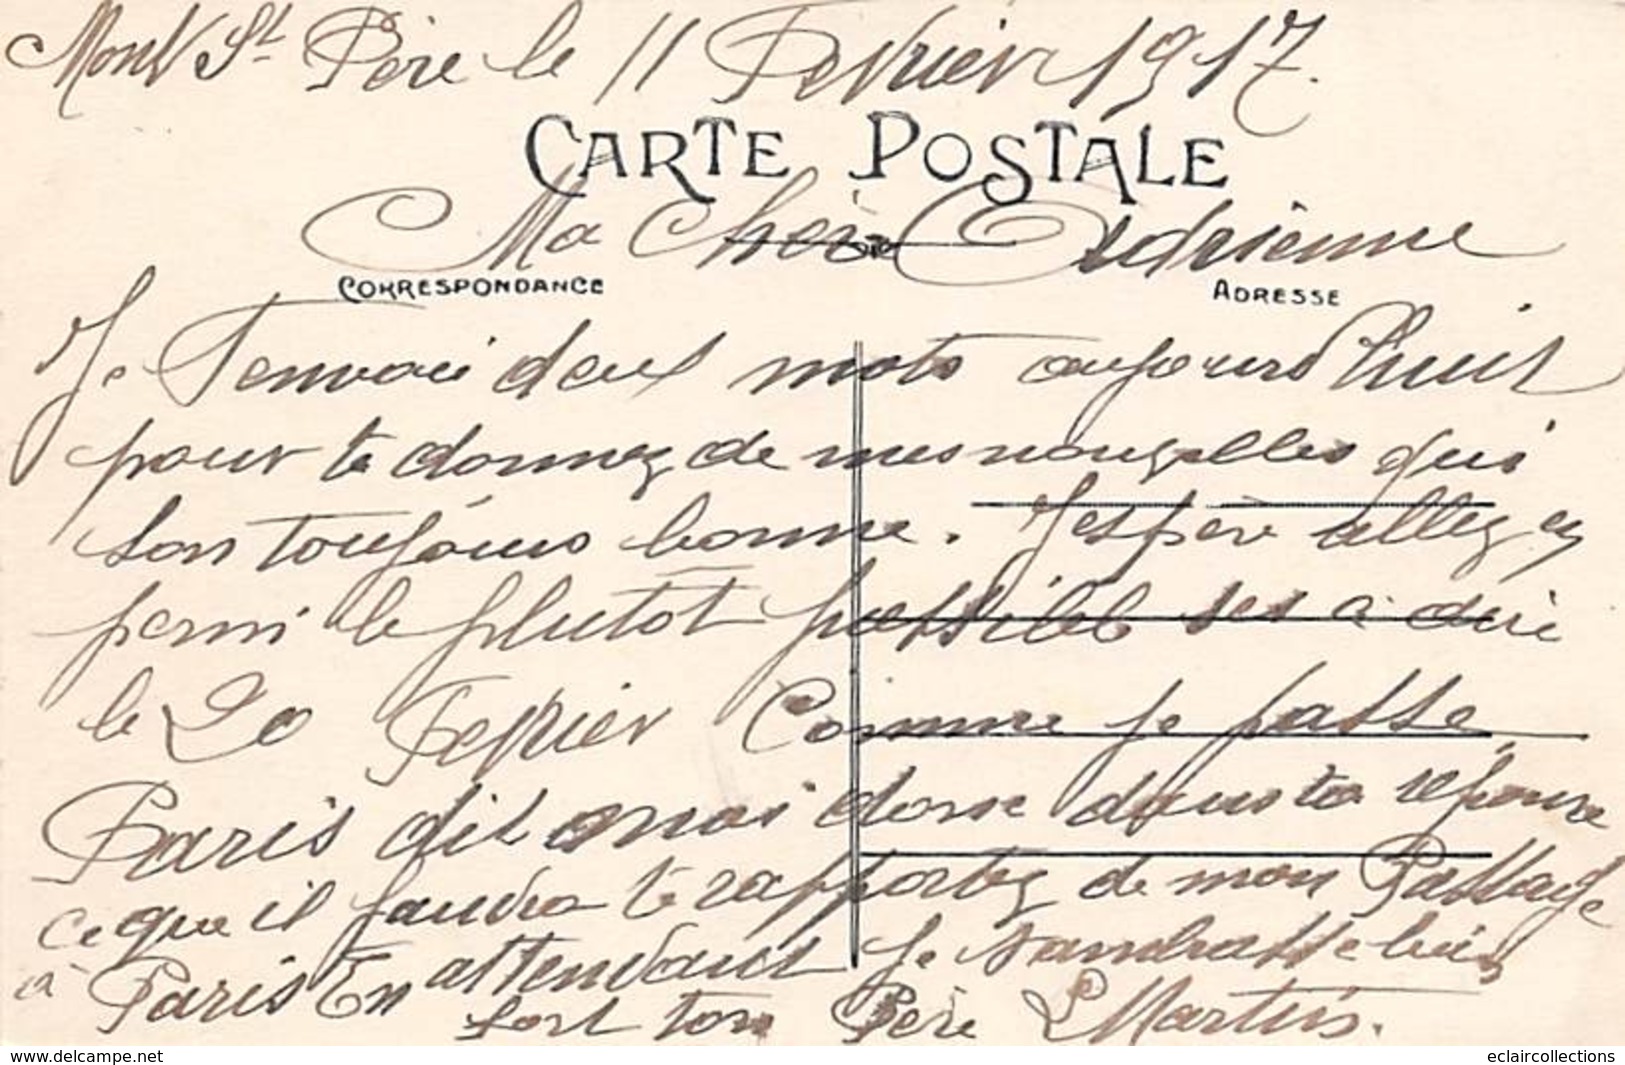 Mont St Père le 11 Fevrier 1917.
CARTE POSTALE
Ma Chère Adrienne
CORRESPONDANCE ADRESSE
Je T'envoie deux mots aujourd'huit
pour te donnez de mes nouvelles qui
son toujours bonne. J'espère allez en
permi le plutot possible ses a dire
le 20 Fevrier Comme je passe
Paris dit moi donc dans ta réponse
ce que il faudra te rapportez de mon Passage
à Paris En attendant je t'ambrasse bien
fort ton Père L Martin.
www.delcampe.net eclaircollections